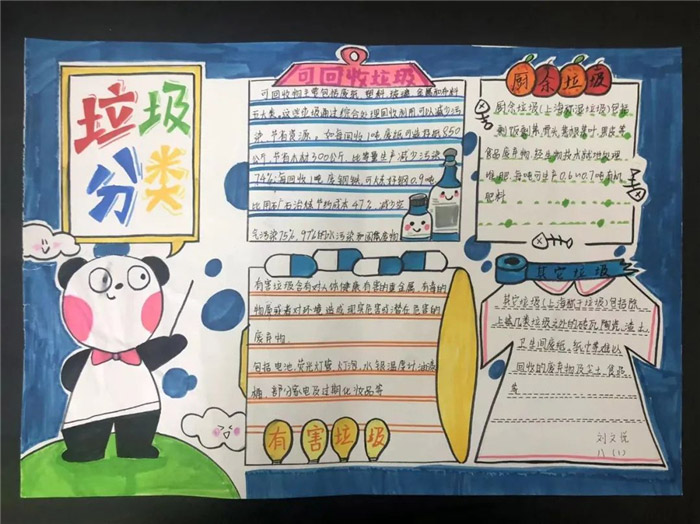 垃圾
分类
可回收垃圾
可回收物主要包括废纸、塑料、玻璃、金属和布料
五大类。这些垃圾通过综合处理回收利用,可以减少污
染,节省资源。如每回收1吨废纸可造好纸850
公斤,节省木材300公斤,比等量生产减少污染
74%;每回收1吨废钢铁可炼好钢0.9吨,
比用矿石冶炼节约成本47%,减少空
气污染75%,97%的水污染和固体废物
厨余垃圾
厨余垃圾(上海称湿垃圾)包括
剩饭剩菜、骨头、菜根菜叶、果皮等
食品废弃物,经生物技术就地处理
堆肥,每吨可生产0.6~0.7吨有机
肥料
有害垃圾含有对人体健康有害的重金属、有毒的
物质或者对环境造成现实危害或潜在危害的
废弃物.
包括电池、荧光灯管、灯泡、水银温度计、油漆
桶、部分家电及过期化妆品等
有害垃圾
其它垃圾
其它垃圾(上海称干垃圾)包括除
上述几类垃圾之外的砖瓦陶瓷、渣土、
卫生间废纸、纸巾等难以
回收的废弃物及尘土、食品
等
八(1)